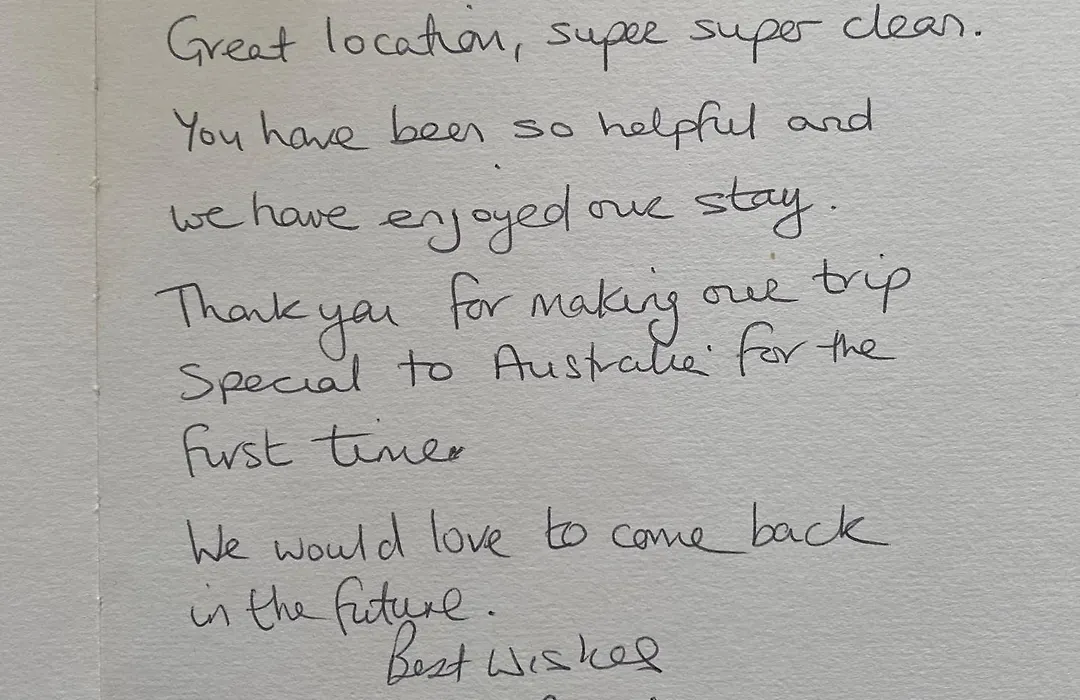 Great location, super super clean.
You have been so helpful and
we have enjoyed our stay.
Thank you for making our trip
special to Australia for the
first time.
We would love to come back
in the future.
Best Wishes